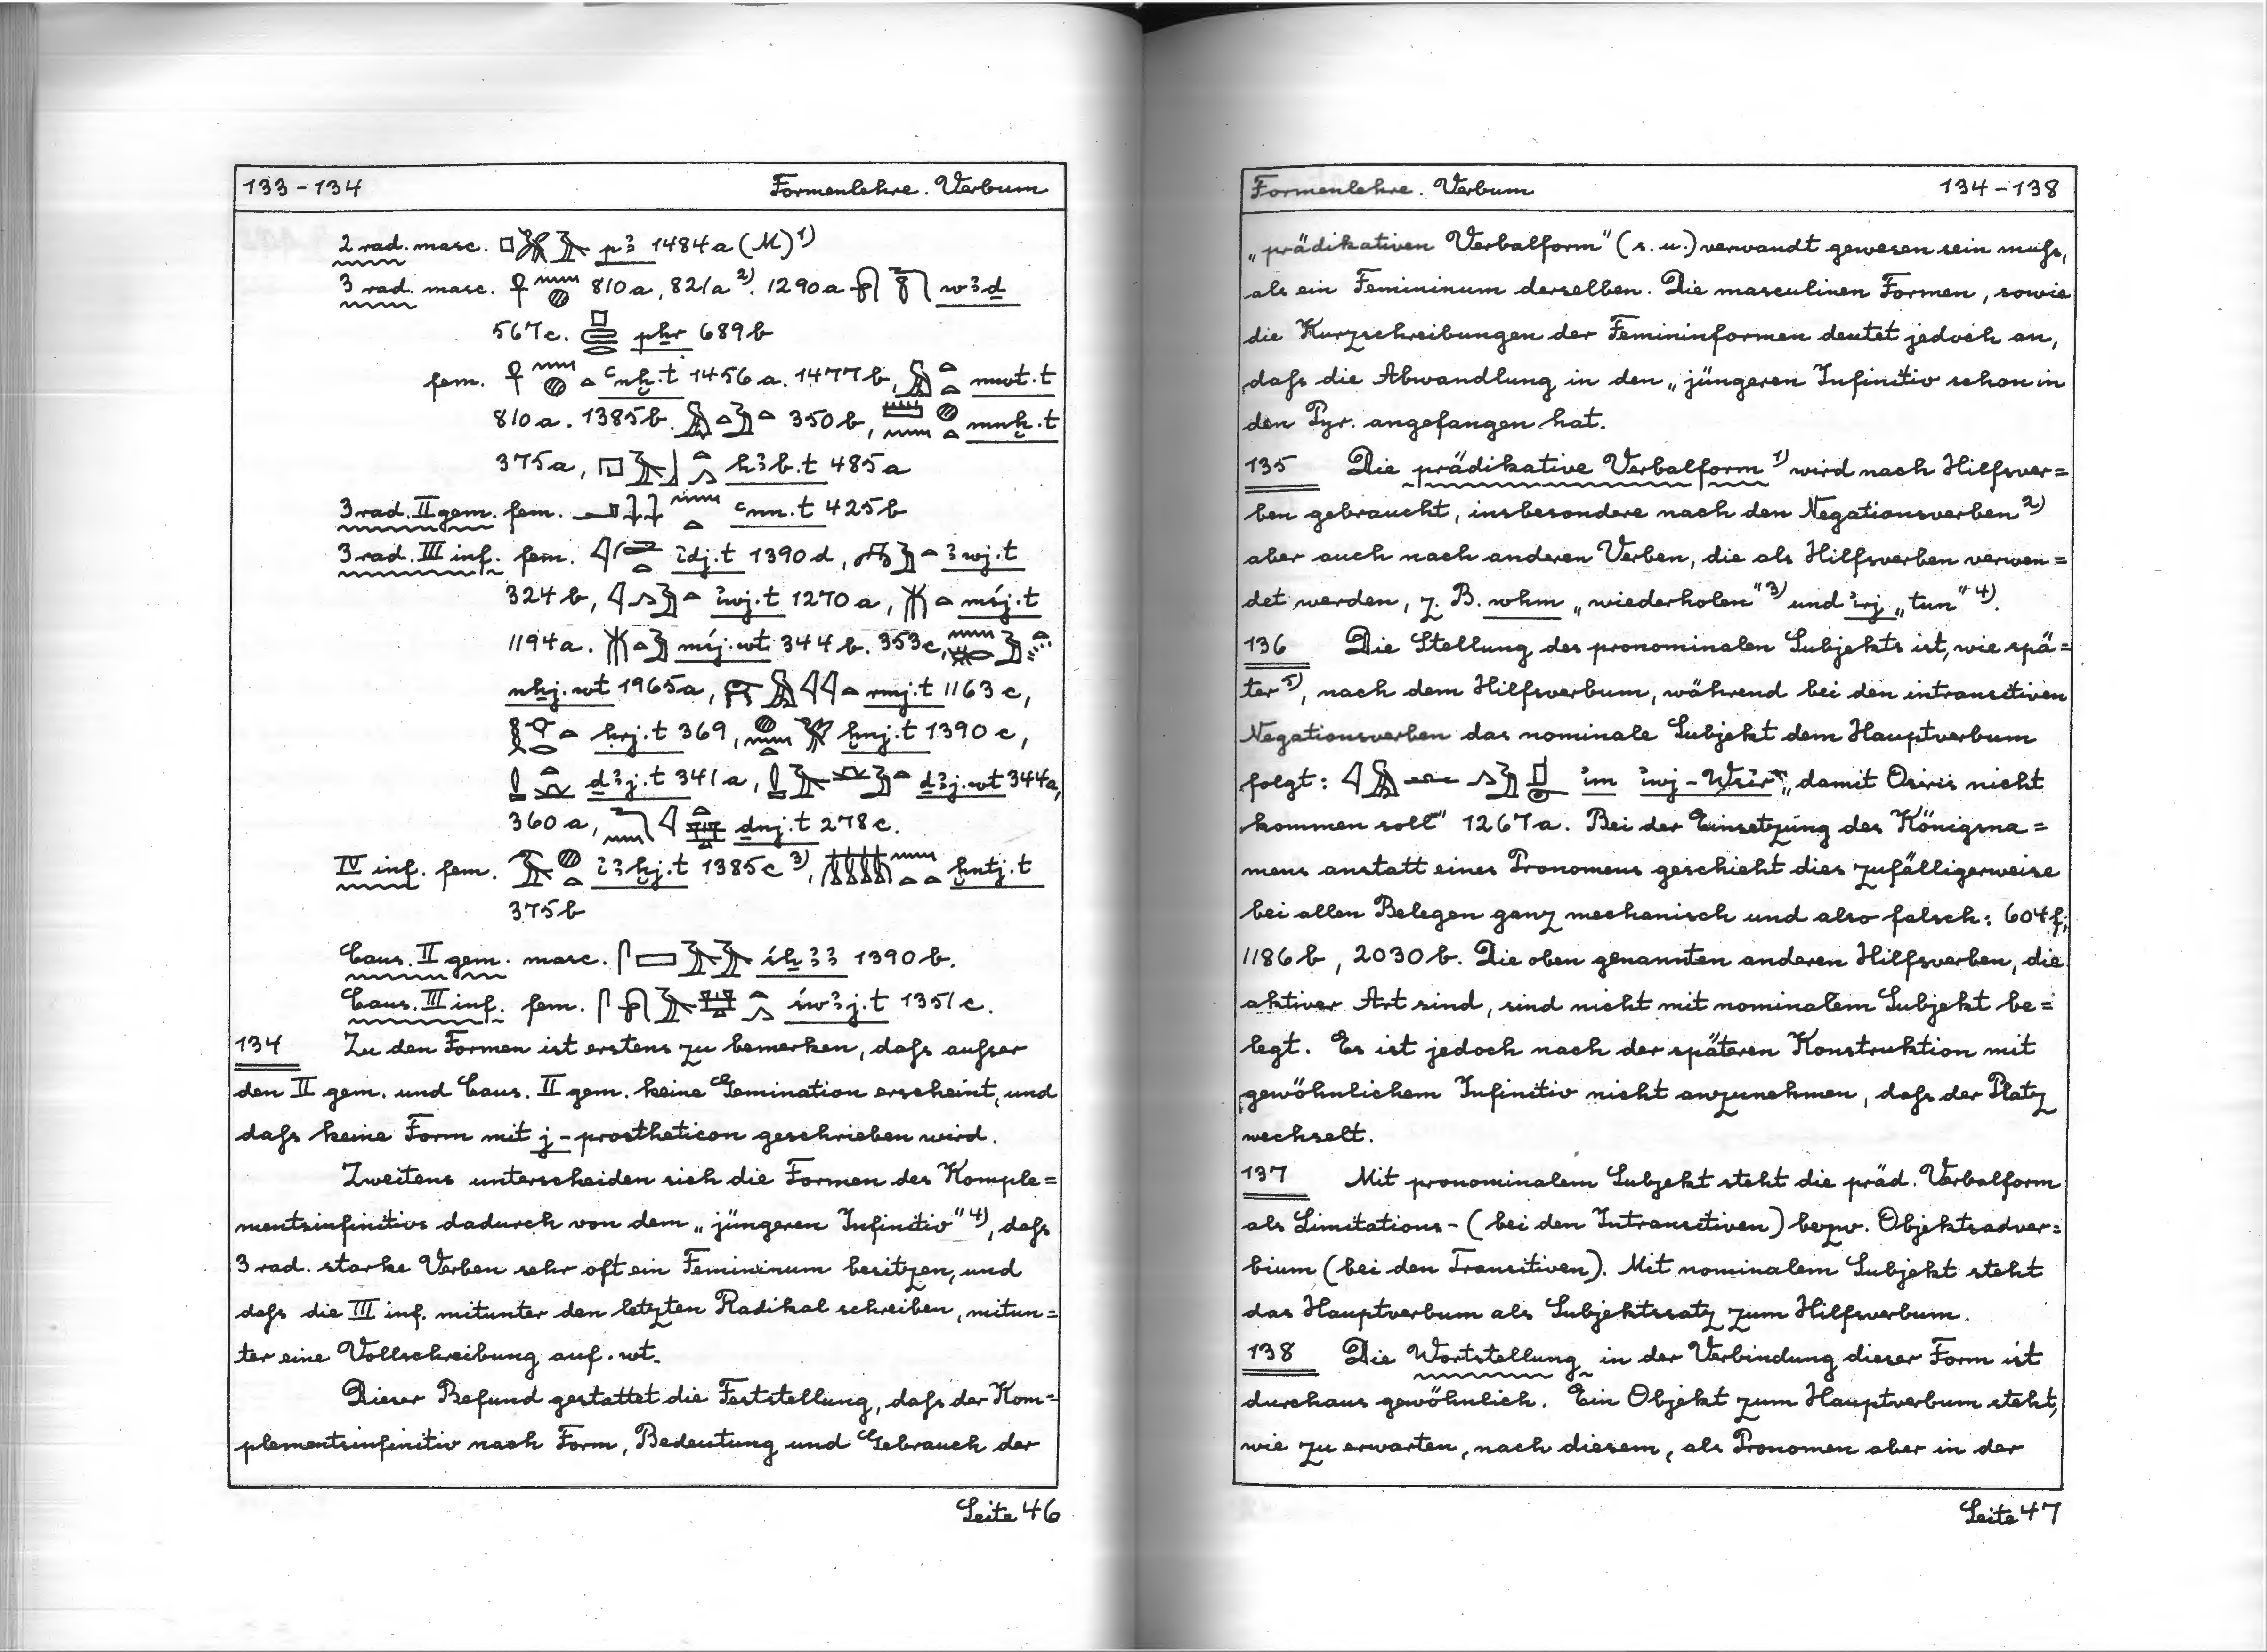 133 - 134 Formenlehre. Verbum
2 rad. masc. pꜣ 1484a (M)1)
3 rad. masc. 810a, 821a2). 1290a wꜣḏ
567c. pẖr 689b
fem. ꜥnḫ.t 1456a. 1477b, mwt.t
810a. 1385b. 350b, mnḫ.t
375a, hꜣb.t 485a
3 rad. II gem. fem. ꜥnn.t 425b
3 rad. III inf. fem. idj.t 1390d, ꜣwj.t
324b, iwj.t 1270a, mśj.t
1194a. mśj.wt 344b. 353c,
nhj.wt 1965a, rmj.t 1163c,
ḥrj.t 369, ḫnj.t 1390c,
ḏꜣj.t 341a, ḏꜣj.wt 344a,
360a, dnj.t 278c.
IV inf. fem. iꜣḫj.t 1385c3), ḫntj.t
375b
Caus. II gem. masc. śẖꜣꜣ 1390b.
Caus. III inf. fem. śwꜣj.t 1351c.
134 Zu den Formen ist erstens zu bemerken, dafs aufser
den II gem. und Caus. II gem. keine Gemination erscheint, und
dafs keine Form mit j-prostheticon geschrieben wird.
Zweitens unterscheiden sich die Formen des Komple=
mentsinfinitivs dadurch von dem „jüngeren Infinitiv"4), dafs
3 rad. starke Verben sehr oft ein Femininum besitzen, und
dafs die III inf. mitunter den letzten Radikal schreiben, mitun=
ter eine Vollschreibung auf .wt.
Dieser Befund gestattet die Feststellung, dafs der Kom=
plementsinfinitiv nach Form, Bedeutung und Gebrauch der
Seite 46
Formenlehre. Verbum 134 - 138
„prädikativen Verbalform" (s. u.) verwandt gewesen sein mufs,
als ein Femininum derselben. Die masculinen Formen, sowie
die Kurzschreibungen der Femininformen deutet jedoch an,
dafs die Abwandlung in den „jüngeren Infinitiv schon in
den Pyr. angefangen hat.
135 Die prädikative Verbalform1) wird nach Hilfsver=
ben gebraucht, insbesondere nach den Negationsverben2)
aber auch nach anderen Verben, die als Hilfsverben verwen=
det werden, z. B. whm „wiederholen"3) und irj „tun"4).
136 Die Stellung des pronominalen Subjekts ist, wie spä=
ter5), nach dem Hilfsverbum, während bei den intransitiven
Negationsverben das nominale Subjekt dem Hauptverbum
folgt: im iwj - Wśir „damit Osiris nicht
kommen soll" 1267a. Bei der Einsetzung des Königsna=
mens anstatt eines Pronomens geschieht dies zufälligerweise
bei allen Belegen ganz mechanisch und also falsch: 604f;
1186b, 2030b. Die oben genannten anderen Hilfsverben, die
aktiver Art sind, sind nicht mit nominalem Subjekt be=
legt. Es ist jedoch nach der späteren Konstruktion mit
gewöhnlichem Infinitiv nicht anzunehmen, dafs der Platz
wechselt.
137 Mit pronominalem Subjekt steht die präd. Verbalform
als Limitations- (bei den Intransitiven) bezw. Objektsadver=
bium (bei den Transitiven). Mit nominalem Subjekt steht
das Hauptverbum als Subjektssatz zum Hilfsverbum.
138 Die Wortstellung in der Verbindung dieser Form ist
durchaus gewöhnlich. Ein Objekt zum Hauptverbum steht,
wie zu erwarten, nach diesem, als Pronomen aber in der
Seite 47